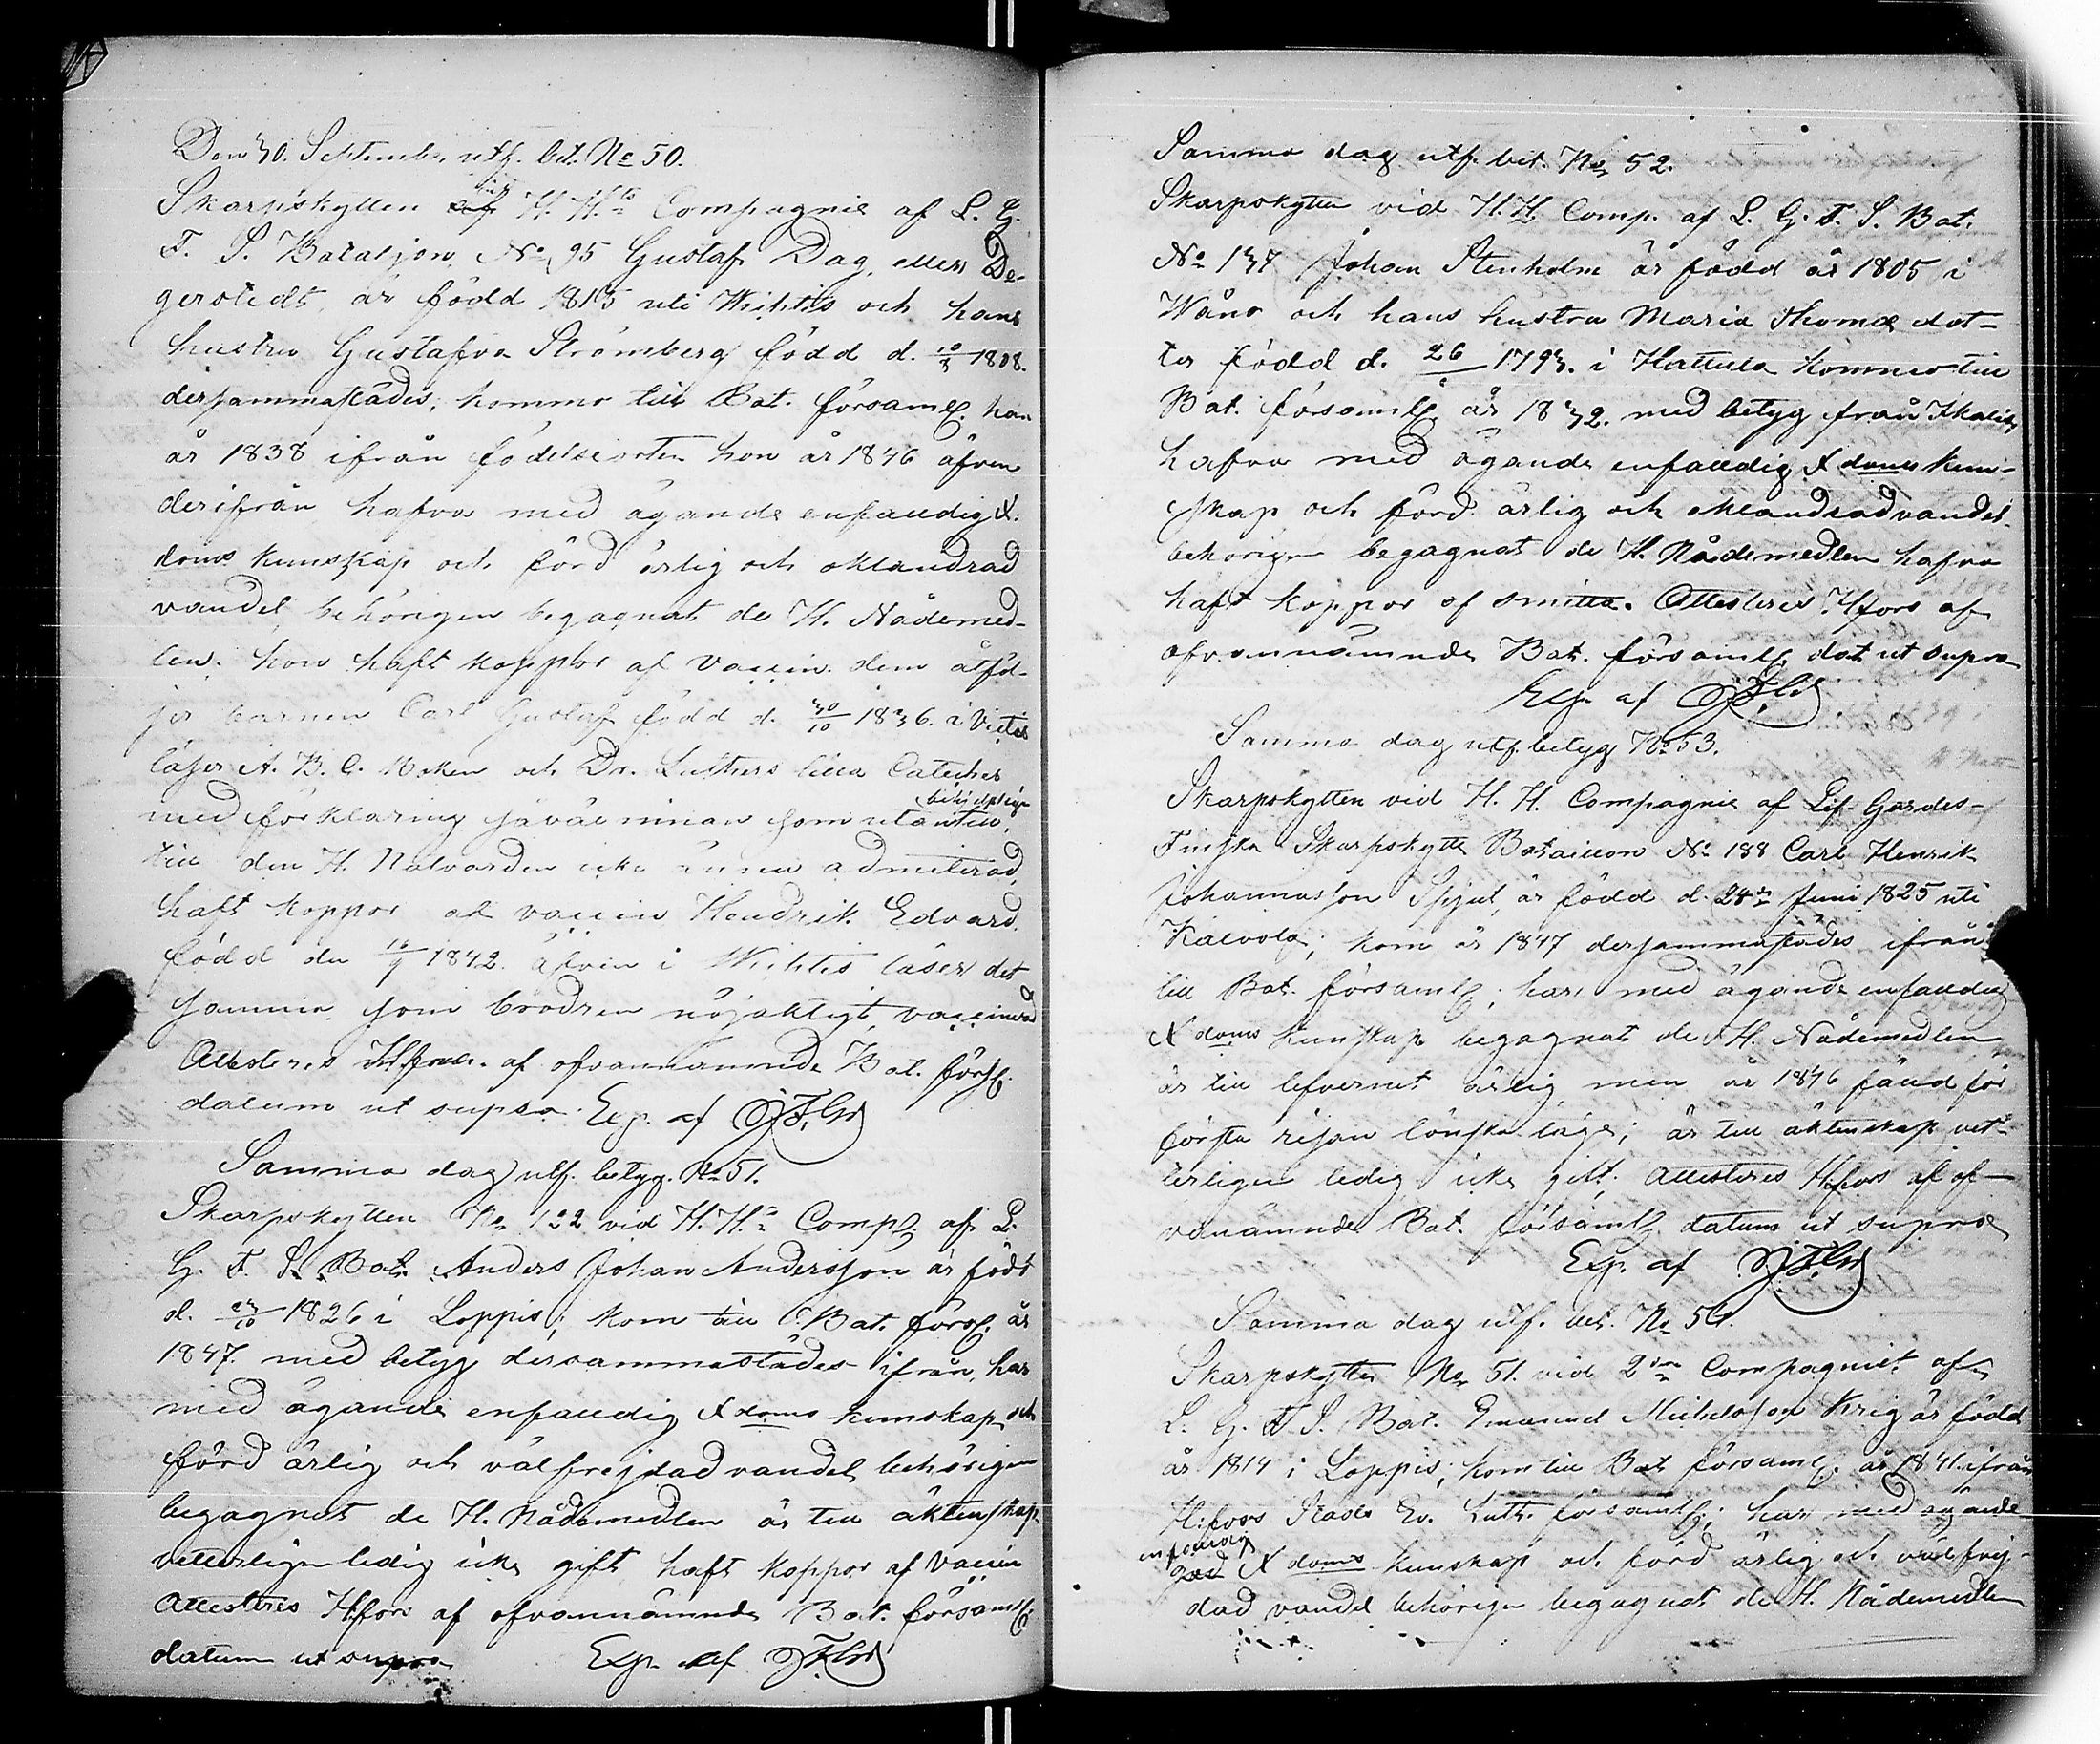 Den 30. September utf. bet. No 50.
Skarpskytten vid H. H:ts Compagnie af L. G.
F. S. Bataljon No 95 Gustaf Dag, eller De-
gerstedt, är född 1815 uti Wichtis och hans
hustru Gustafva Strömberg född d. 10/3 1808.
dersammastädes, kommo till Bat. församl. han
år 1838 ifrån födelseorten hon år 1846 äfven
derifrån hafva med ägande enfaldig X.
doms kunskap och förd ärlig och oklandrad
vandel, behörigen begagnat de H. Nådemed-
len. hon haft koppor af vaccin. dem åtföl-
jer barnen Carl Gustaf född d. 30/10 1836. i Victis
läser A. B. C. Boken och Dr. Luthers lilla Cateches
med förklaring såväl innan som utantill, behjelpligen
till den H. Nattvarden icke ännu admitterad,
haft koppor af vaccin Hendrik Edvard.
född den 16/9 1842. äfven i Wichtis läser det
samma som brodren nöjaktigt, vaccinerad
Attesteras H:fors. af ofvannämnde Bat. förs:l.
datum ut supra. Exp. af
Samma dag utf. betyg. No 51.
Skarpskytten No 122 vid H. H:s Comp. af L.
G. F. S. Bat. Anders Johan Andersson är född
d. 23/10 1826 i Loppis; kom till Bat. förs. år
1847. med betyg dersammastädes ifrån, har
med ägande enfaldig X doms kunskap och
förd ärlig och välfrejdad vandel behörigen
begagnat de H. Nådemedlen är till äktenskap
vetterligen ledig icke gift, haft koppor af vaccin
Attesteras H:fors af ofvannämnde Bat. församl.
datum ut supra Exp. af
Samma dag utf. bet. No 52.
Skarpskytten vid H. H. Comp. af L. G. F. S. Bat.
No 137 Johan Stenholm är född år 1805 i
Wånå och hans hustru Maria Thomædot-
ter född d. 26/ 1793. i Hattula kommo till
Bat. församl. år 1832. med betyg från
hafva med ägande enfaldig X doms kun-
skap och förd ärlig och oklandrad vandel
behörigen begagnat de H. Nådemedlen hafva
haft koppor af smitta. Attesteras H:fors af
ofvannämnde Bat. församl. dat ut supra
Exp. af
Samma dag utf. betyg No 53.
Skarpskytten vid H. H. Compagnie af Lif-Gardes-
Finska Skarpskytte Bataillon No 188 Carl Henrik
Johannasson Spjut, är född d. 24de Juni 1825 uti
Kalvola; kom år 1847 dersammastädes ifrån
till Bat. församl.; har med ägande enfaldig
X doms kunskap begagnat de H. Nådemedlen
är till lefvernet ärlig men år 1846 fälld för
första resan lönskaläge; är till äktenskap vet-
terligen ledig icke gift; Attesteras H:fors af of-
vanämnde Bat. församl. datum ut supra
Exp. af
Samma dag utf. bet. No 54.
Skarpskytten No 51. vid 2dra Compagniet af
L. G. F. S. Bat. Emanuel Michelsson Krig är född
år 1814 i Loppis; kom till Bat. församl. år 1841 ifrån
H:fors Stads Ev. Luth. församl.; har med ägande
enfaldig
god X doms kunskap och förd ärlig och välfrej-
dad vandel behörigen begagnat de H. Nådemedlen